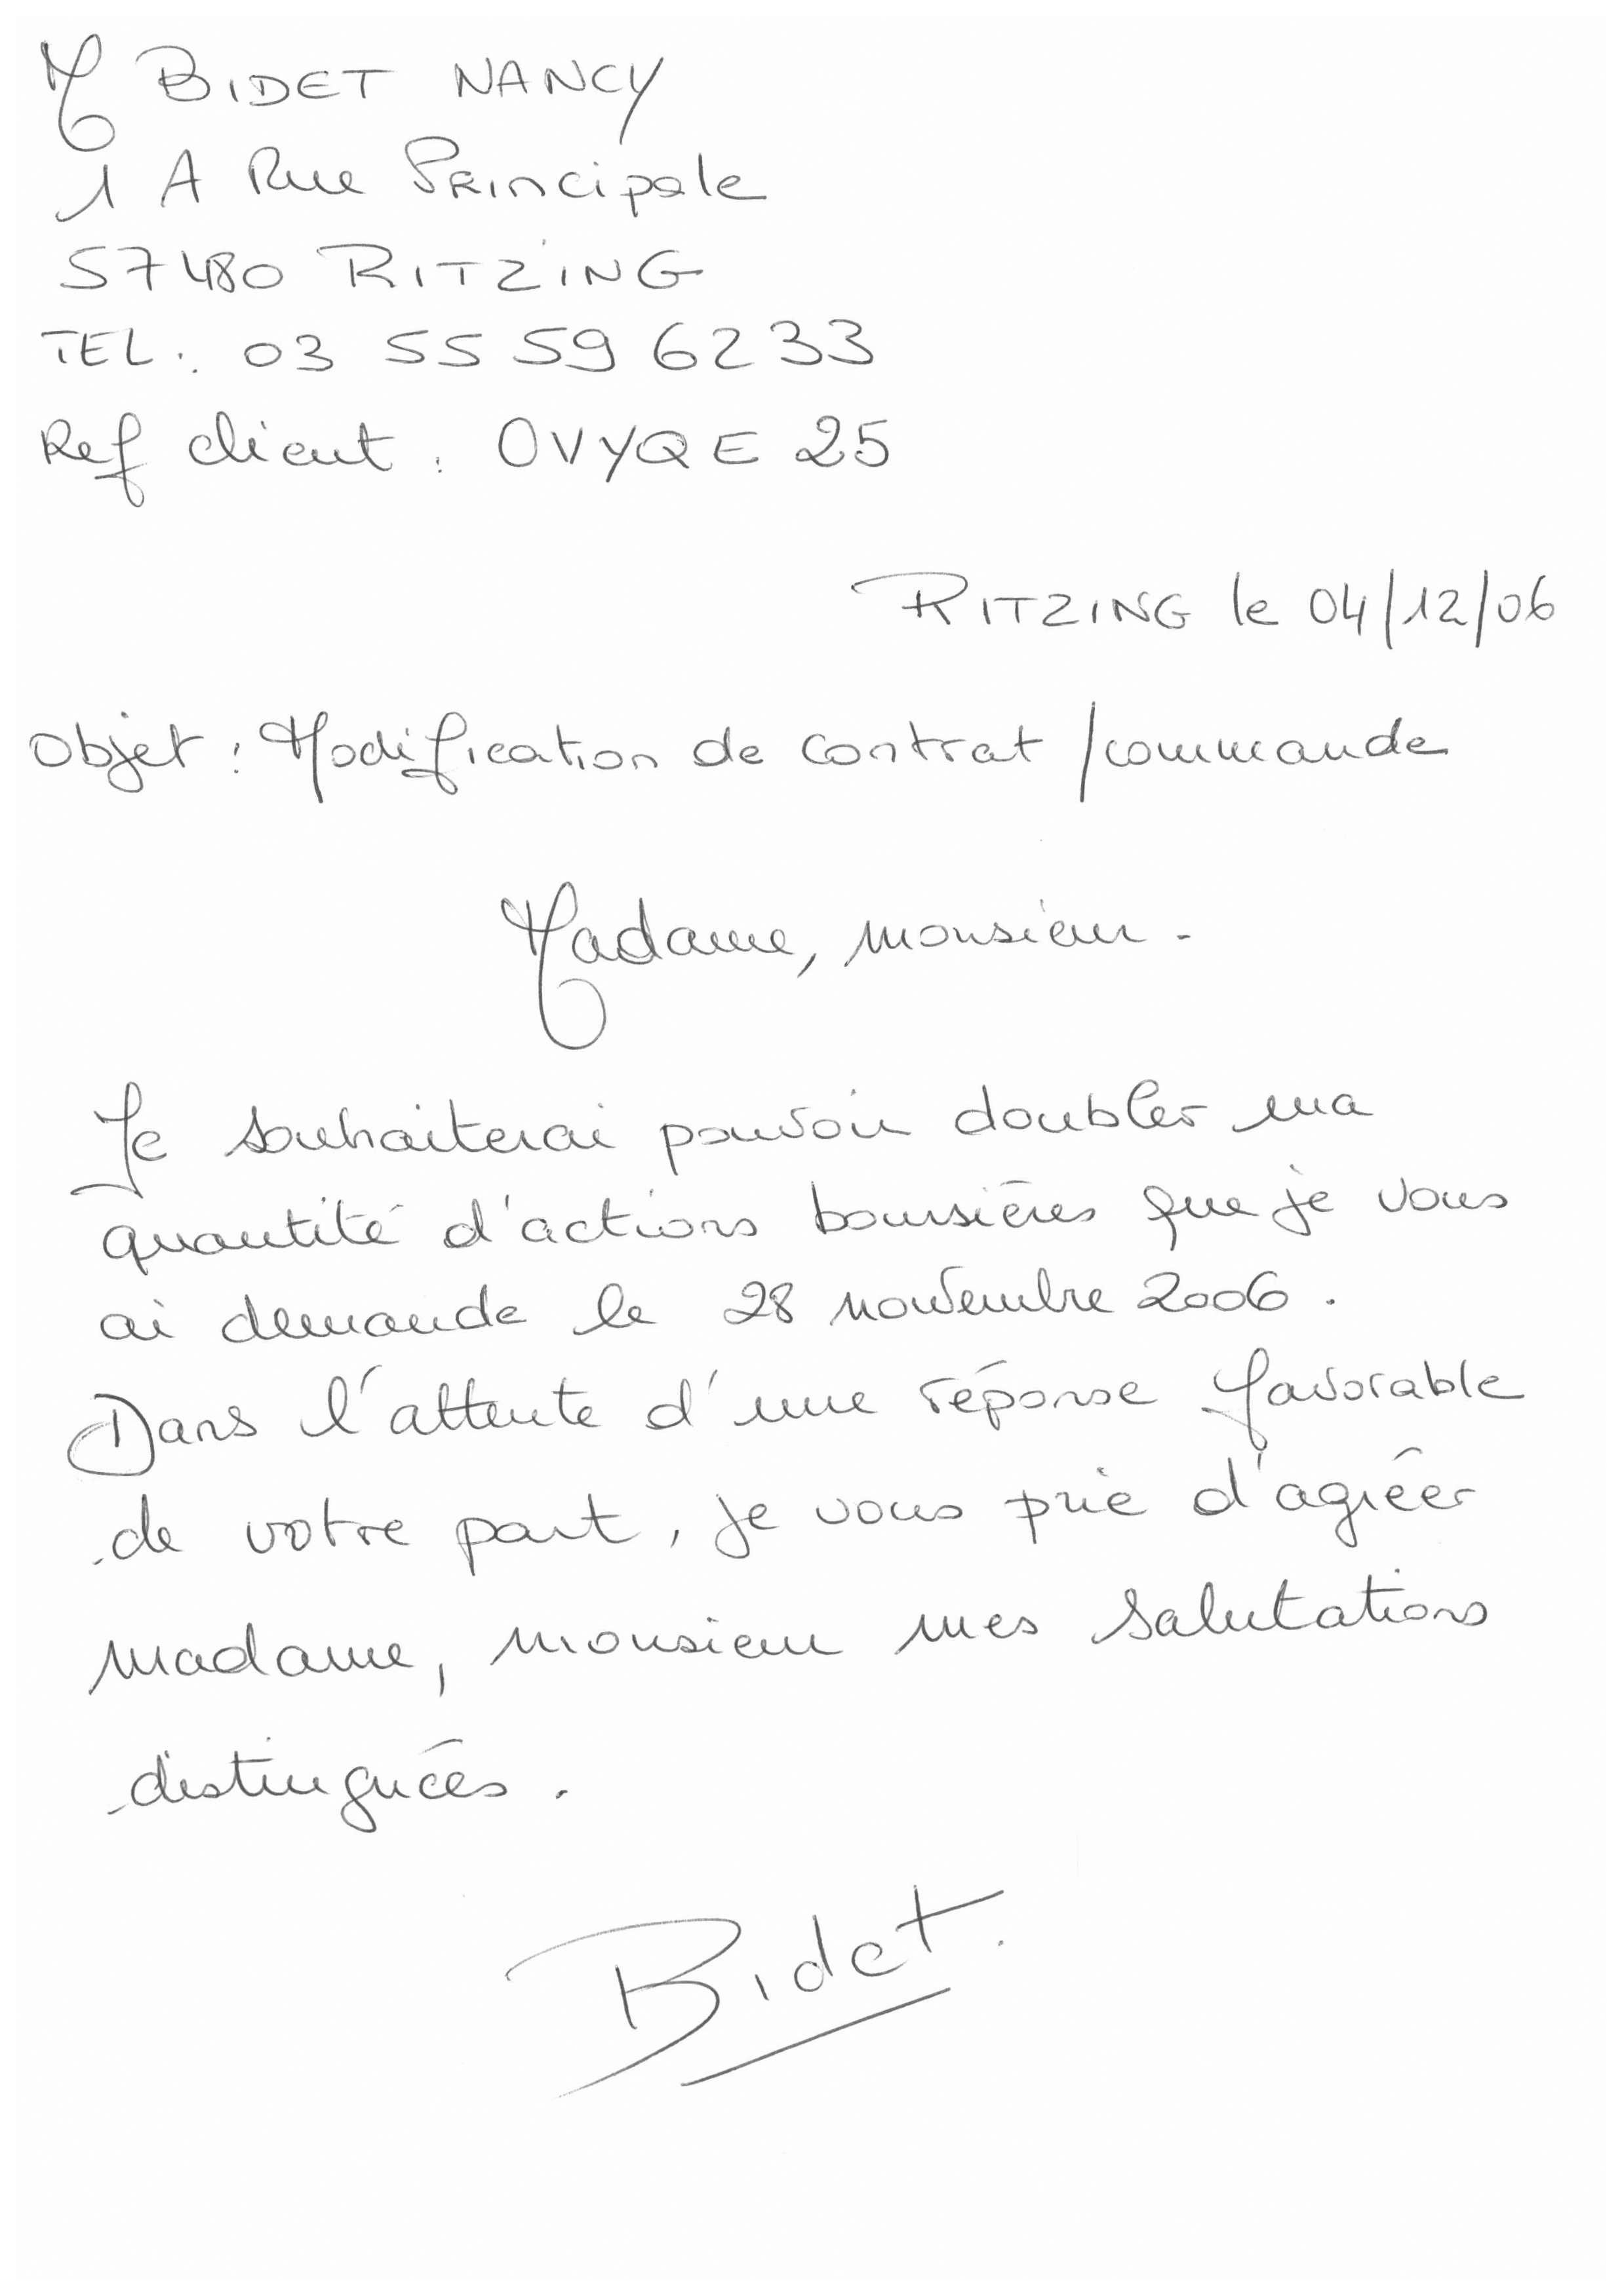 M BIDET NANCY
1 A Rue Principale
57480 RITZING
TEL : 03 55 59 62 33
Ref client : OVYQE 25
RITZING le 04/12/06
Objet : Modification de contrat /commande
Madame, monsieur.
Je souhaiterai pouvoir doubler ma
quantité d'actions boursières que je vous
ai demande le 28 novembre 2006.
Dans l'attente d'une réponse favorable
de votre part, je vous prie d'agréer
madame, monsieur mes salutations
distinguées.
Bidet.